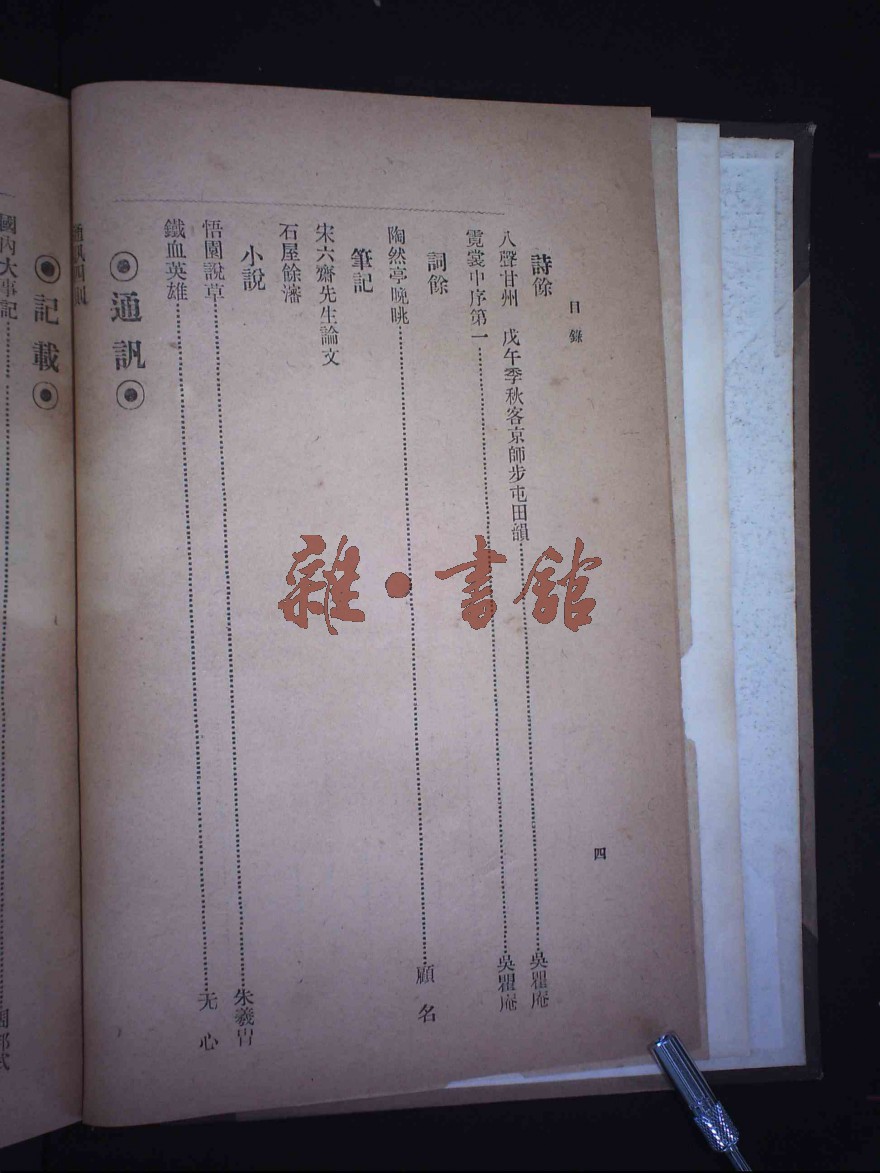 目錄
四
詩餘
八聲甘州　戊午季秋客京師步屯田韻……吳瞿庵
霓裳中序第一……吳瞿庵
詞餘
陶然亭晚眺……顧名
筆記
宋六齋先生論文
石屋餘瀋
小說
悟園說草……朱羲冑
鐵血英雄……无心
◉通訊◉
通訊四則
◉記載◉
國內大事記……
雜·書館